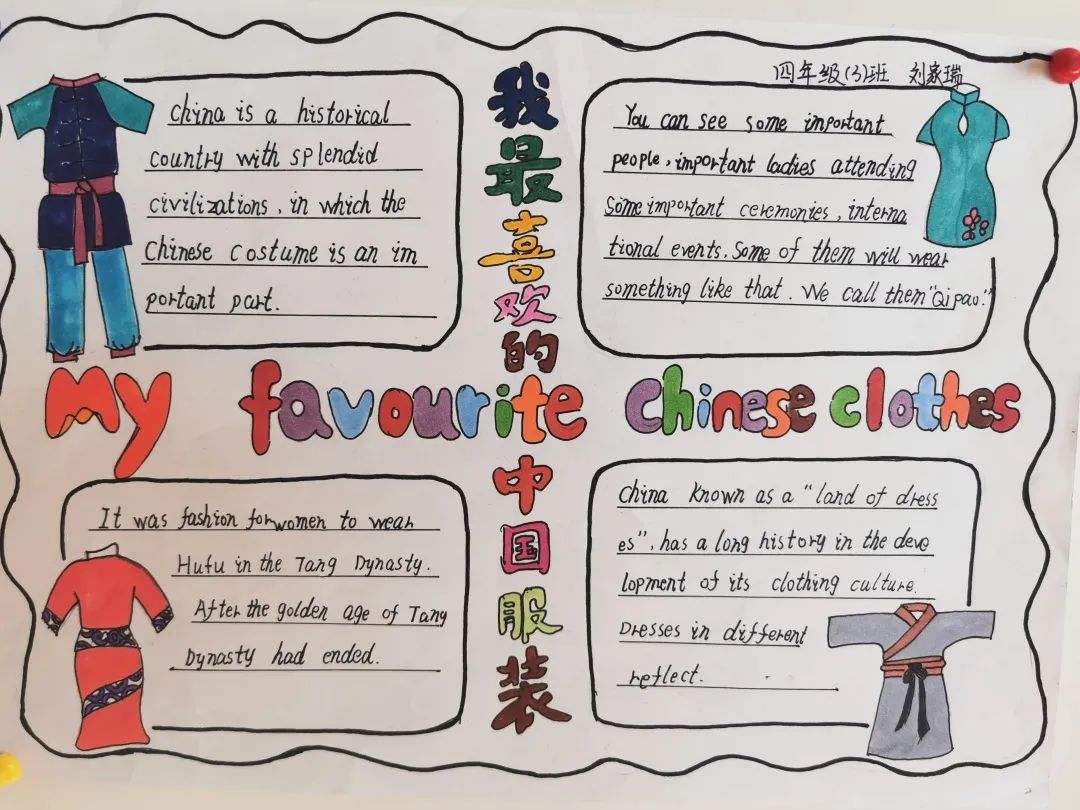 四年级(3)班 刘家瑞
我最喜欢的中国服装
China is a historical
country with splendid
civilizations, in which the
Chinese costume is an im
portant part.
You can see some important
people, important ladies attending
some important ceremonies, interna
tional events. Some of them will wear
something like that. We call them "Qi pao."
My favourite Chinese clothes
It was fashion for women to wear
Hufu in the Tang Dynasty.
After the golden age of Tang
Dynasty had ended.
China known as a "land of dress
es", has a long history in the deve
lopment of its clothing culture.
Dresses in different
reflect.